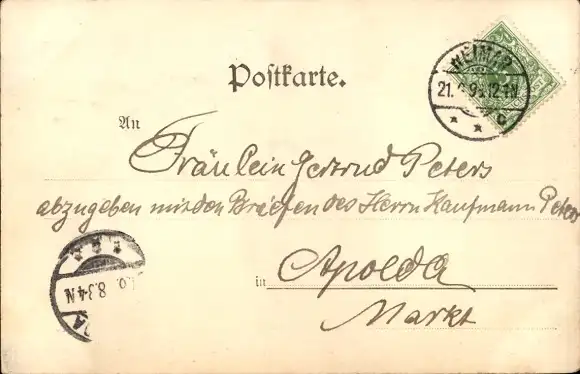 Postkarte.
WEIMAR
12-1N
An
Fräulein Gertrud Peters
abzugeben mit den Briefen des Herrn Kaufmann Peters
in Apolda
Markt
8.34N